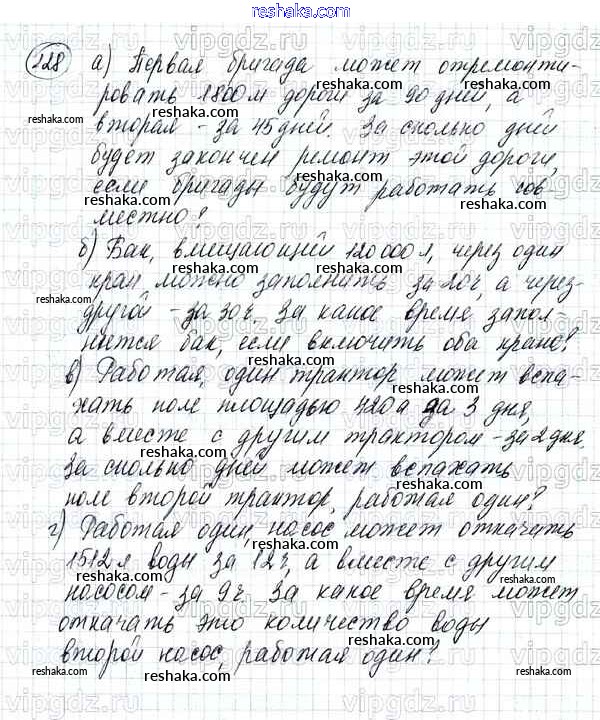 reshaka.com
228 а) Первая бригада может отремонти-
ровать 1800 м дороги за 90 дней, а
вторая - за 45 дней. За сколько дней
будет закончен ремонт этой дороги,
если бригады будут работать сов
местно?
б) Бак, вмещающий 120 000 л, через один
кран можно заполнить за 20 ч, а через-
другой - за 30 ч. За какое время запол-
нется бак, если включить оба крана?
в) Работая, один трактор может вспа-
хать поле площадью 420 а за 3 дня,
а вместе с другим трактором - за 2 дня,
За сколько дней может вспахать
поле второй трактор, работая один?
г) Работая один, насос может откачать
1512 л воды за 12 ч, а вместе с другим
насосом - за 9 ч. За какое время может
откачать это количество воды
второй насос, работая один?